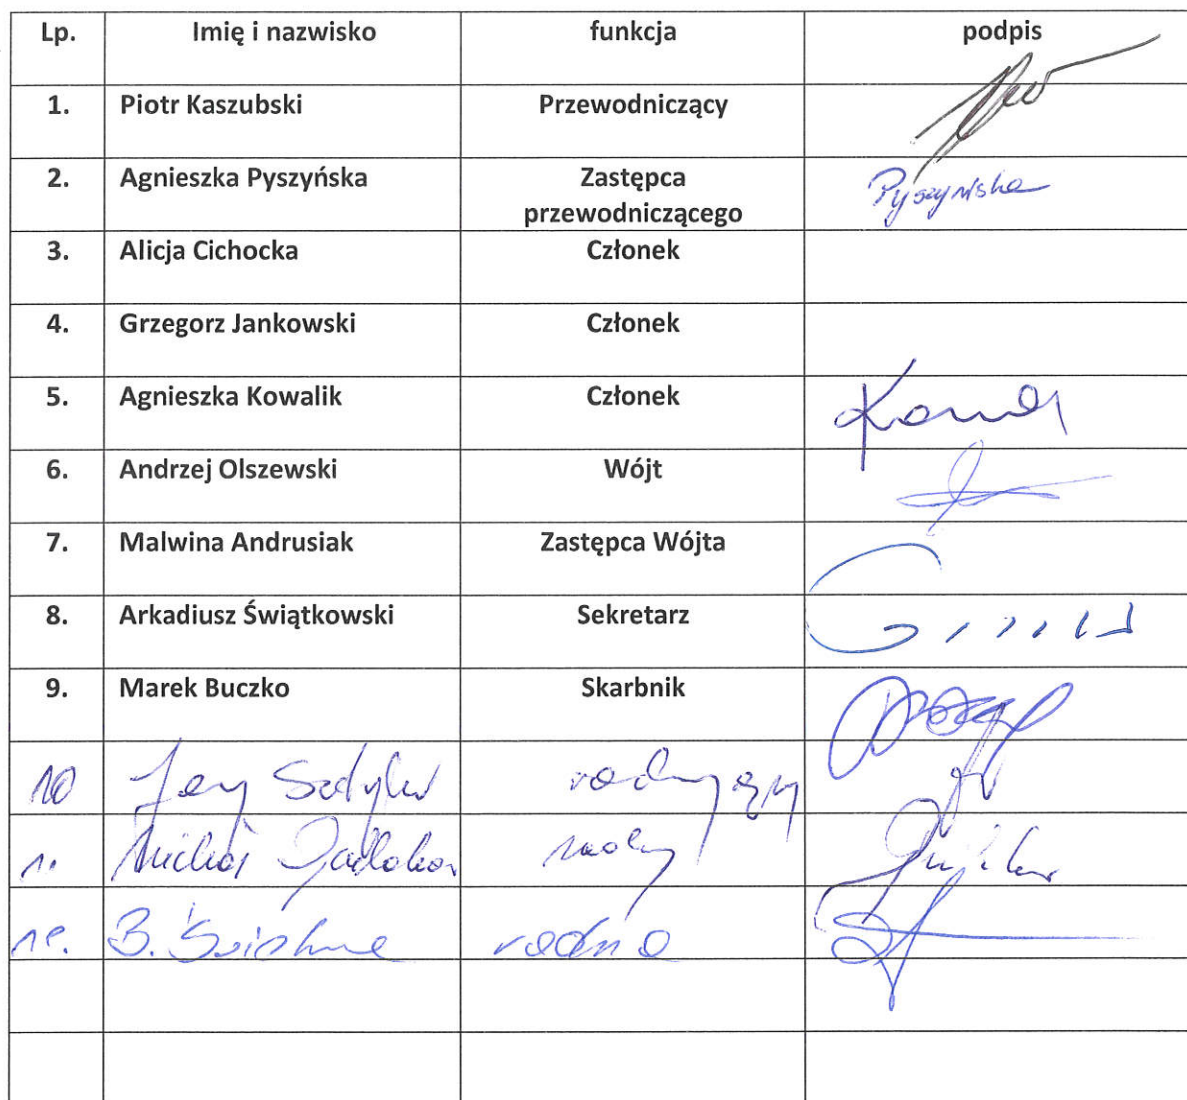 Lp. Imię i nazwisko funkcja podpis
1. Piotr Kaszubski Przewodniczący
2. Agnieszka Pyszyńska Zastępca przewodniczącego Pyszyńska
3. Alicja Cichocka Członek
4. Grzegorz Jankowski Członek
5. Agnieszka Kowalik Członek
6. Andrzej Olszewski Wójt
7. Malwina Andrusiak Zastępca Wójta
8. Arkadiusz Świątkowski Sekretarz
9. Marek Buczko Skarbnik
10 radny
11 Michał radny
12. B. radna